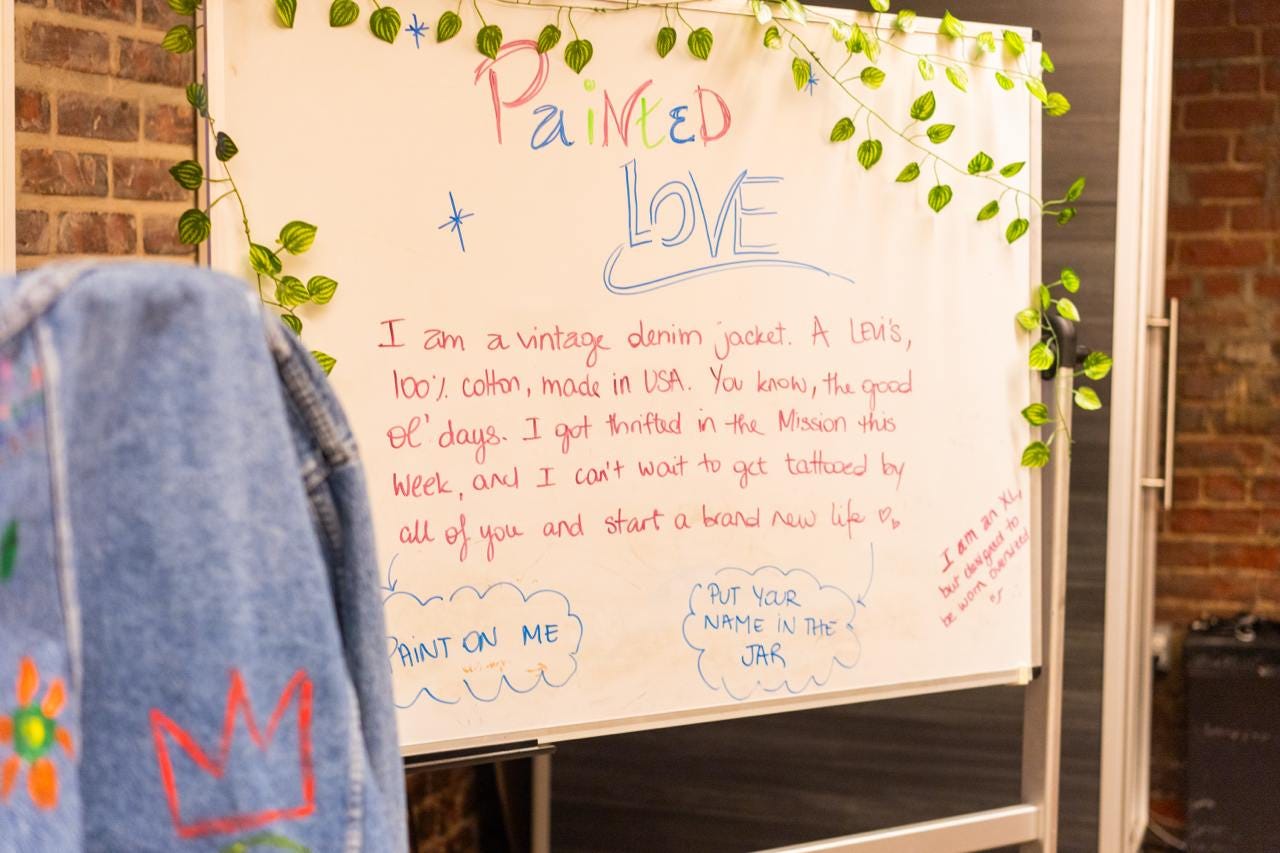 PAiNtED
LOVE
I am a vintage denim jacket. A LEVI'S,
100% cotton, made in USA. You know, the good
ol' days. I got thrifted in the Mission this
week, and I can't wait to get tattooed by
all of you and start a brand new life
I am an XL,
but designed to
be worn oversized
PAINT ON ME
PUT YOUR
NAME IN THE
JAR